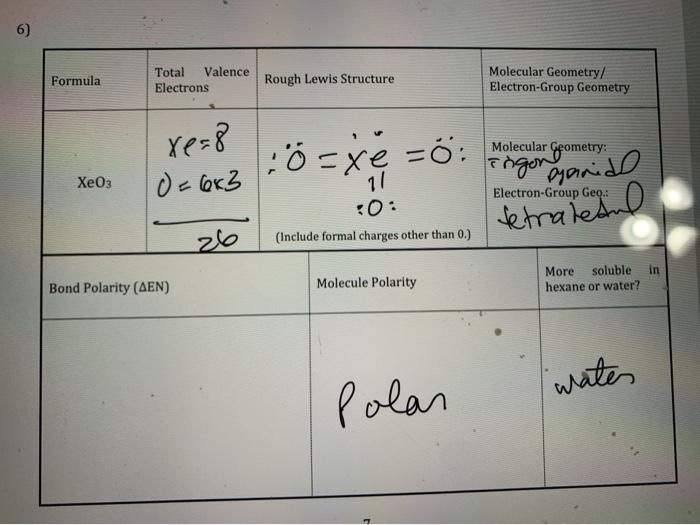 6)
Formula
Total Valence
Electrons
Rough Lewis Structure
Molecular Geometry/
Electron-Group Geometry
XeO3
Xe=8
O=6x3
26
:Ö=Xe=Ö:
||
:O:
(Include formal charges other than 0.)
Molecular Geometry:
Trigonal
pyramidal
Electron-Group Geo.:
tetrahedral
Bond Polarity (ΔEN)
Molecule Polarity
More soluble in
hexane or water?
Polar
water
7